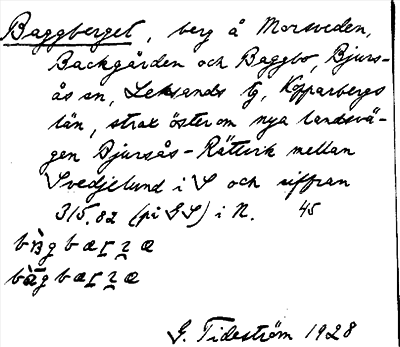 Baggberget, berg å Morsveden,
Backgården och Baggbo, Bjurs-
ås sn, Leksands tg, Kopparbergs
län, strax öster om nya landsvä-
gen Bjursås-Rättvik mellan
Svedjelund i S och siffran
315,82 (på GS) i N. 45
G. Tideström 1928